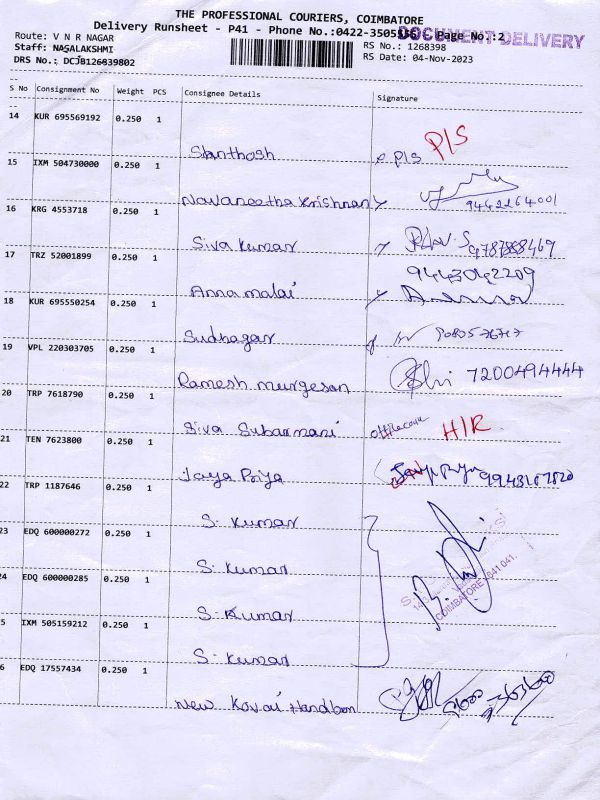 THE PROFESSIONAL COURIERS, COIMBATORE
Delivery Runsheet - P41 - Phone No.:0422-3505 Page No.:2
DOCUMENT DELIVERY
Route: V N R NAGAR RS No.: 1268398
Staff: NAGALAKSHMI RS Date: 04-Nov-2023
DRS No.: DCJB126839802
S No Consignment No Weight PCS Consignee Details Signature
14 KUR 695569192 0.250 1
Santhosh P/S P/S
15 IXM 504730000 0.250 1
Navaneetha Krishnan 9442264001
16 KRG 4553718 0.250 1
Siva Kumar 9787888469
17 TRZ 52001899 0.250 1 9443042209
Annamalai
18 KUR 695550254 0.250 1
Sudhagar
19 VPL 220303705 0.250 1
Ramesh murgesan 7200494444
20 TRP 7618790 0.250 1
Siva Subarmani H/R
21 TEN 7623800 0.250 1
Jaya Priya
22 TRP 1187646 0.250 1
S. Kumar
23 EDQ 600000272 0.250 1
S. Kumar
24 EDQ 600000285 0.250 1
S. Kumar COIMBATORE 641 041.
5 IXM 505159212 0.250 1
S. Kumar
6 EDQ 17557434 0.250 1
New Kovai Handloom